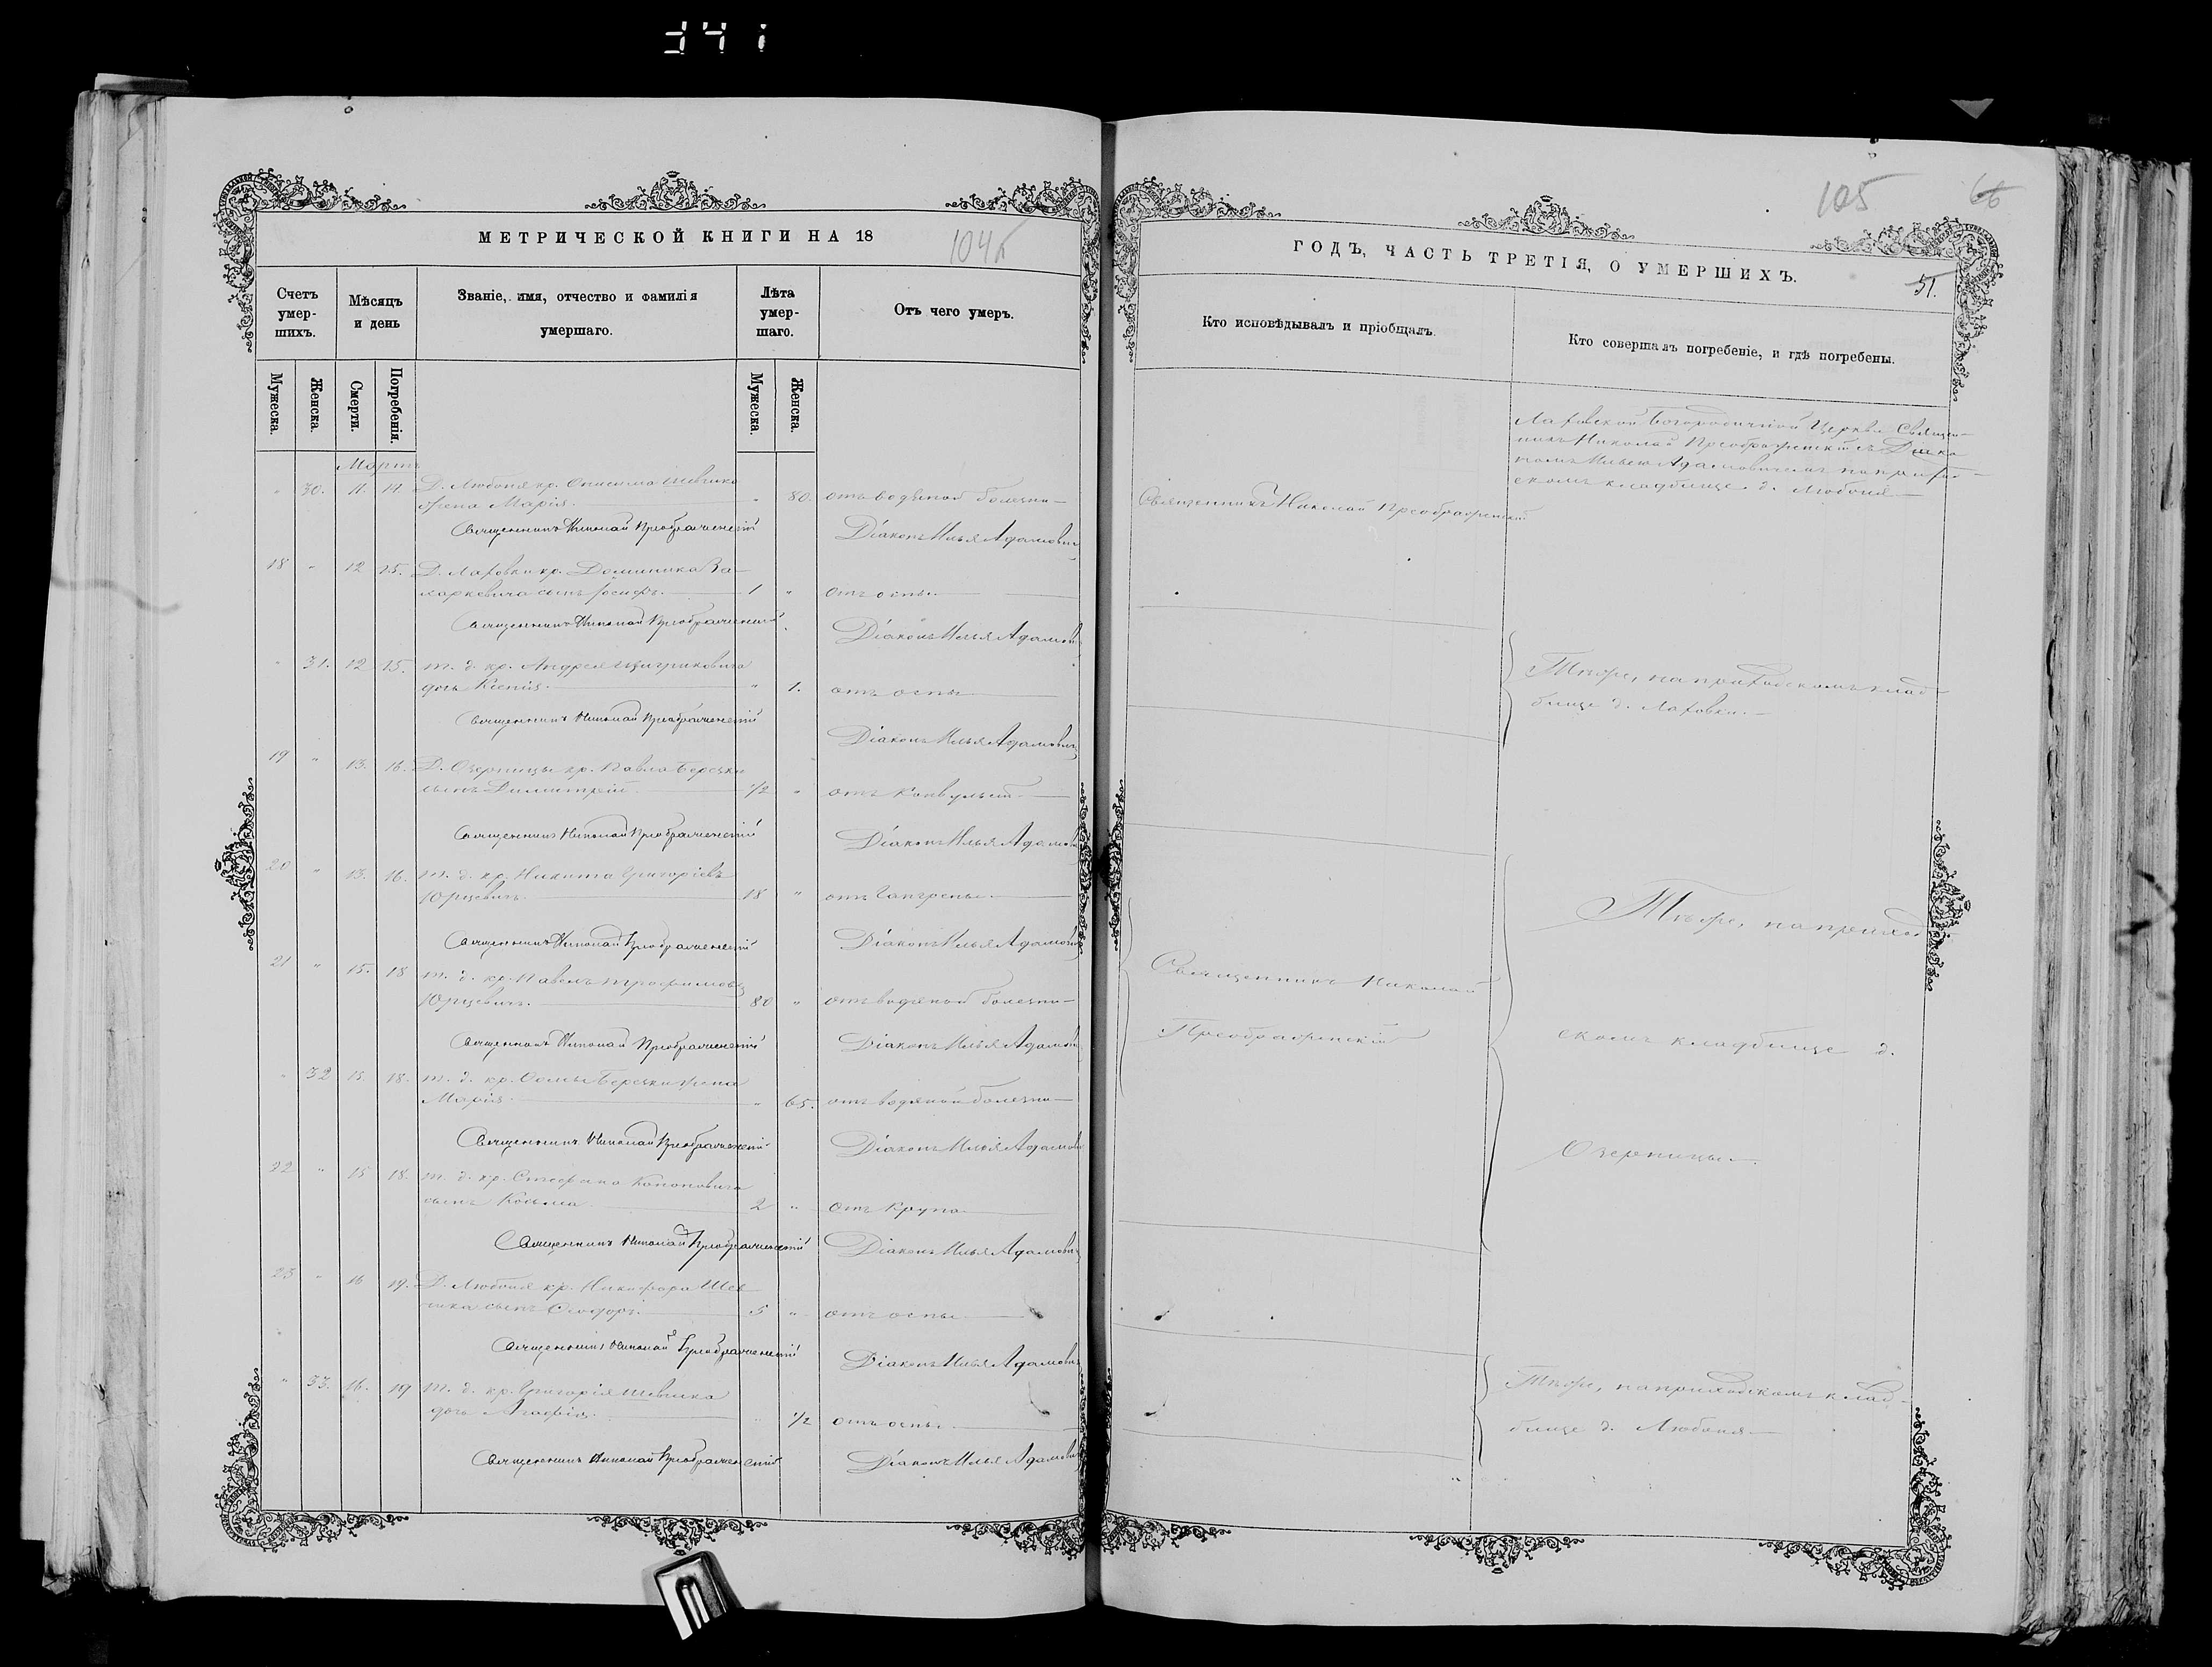 МЕТРИЧЕСКОЙ КНИГИ НА 18
104б
Счетъ умер-шихъ.
Мѣсяцъ и день
Званіе, имя, отчество и фамилія умершаго.
Лѣта умер-шаго.
Отъ чего умеръ.
Мужеска.
Женска.
Смерти.
Погребенія.
Мужеска.
Женска.
Мартъ
" 30. 11. 14. Д. Любоня кр. Онисима Шевчика
жена Марія. " 80. отъ водяной болезни
Священникъ Николай Преображенскій Діаконъ Илья Адамович
18 " 12 15. Д. Лаховки кр. Доминика За-
харкевича сынъ Іосифъ. 1 " отъ оспы
Священникъ Николай Преображенскій Діаконъ Илья Адамов
" 31. 12 15. т. д. кр. Андрея
дочь Ксенія. " 1. отъ оспы
Священникъ Николай Преображенскій Діаконъ Илья Адамович
19 " 13. 16. Д. Озерницы кр. Павла Березки
сынъ Димитрій. 1/2 " отъ конвульсій
Священникъ Николай Преображенскій Діаконъ Илья Адамов
20 " 13. 16. т. д. кр. Никита Григоріевъ
Юрцевичъ. 18 " отъ гангрены
Священникъ Николай Преображенскій Діаконъ Илья Адамови
21 " 15. 18 т. д. кр. Павелъ Трофимовъ
Юрцевичъ. 80 " отъ водяной болезни
Священникъ Николай Преображенскій Діаконъ Илья Адамов
" 32 15. 18. т. д. кр. Ѳомы Березки жена
Марія " 65. отъ водяной болезни
Священникъ Николай Преображенскій Діаконъ Илья Адамов
22 " 15 18. т. д. кр. Стефана Кононовича
сынъ Косьма 2 " отъ крупа
Священникъ Николай Преображенскій Діаконъ Илья Адамович
23 " 16 19. Д. Любоня кр. Никифора Шев-
чика сынъ Ѳеодоръ. 5 " отъ оспы
Священникъ Николай Преображенскій Діаконъ Илья Адамович
" 33. 16. 19 т. д. кр. Григорія Шевчика
дочь Агафія. " 1/2 отъ оспы
Священникъ Николай Преображенскій Діаконъ Илья Адамович
105
66
ГОДЪ, ЧАСТЬ ТРЕТІЯ, О УМЕРШИХЪ.
51.
Кто исповѣдывалъ и пріобщалъ.
Кто совершалъ погребеніе, и гдѣ погребены.
Лаховской Богородичной Церкви Священ-
никъ Николай Преображенскій съ Діако
номъ Ильею Адамовичемъ на приход-
скомъ кладбище д. Любоня
Священникъ Николай Преображенскій
Тѣже, на приходскомъ клад-
бище д. Лаховки.
Тѣже, на приход
Священникъ Николай
Преображенскій
скомъ кладбище д.
Озерницы.
Тѣже, на приходскомъ клад-
бище д. Любоня